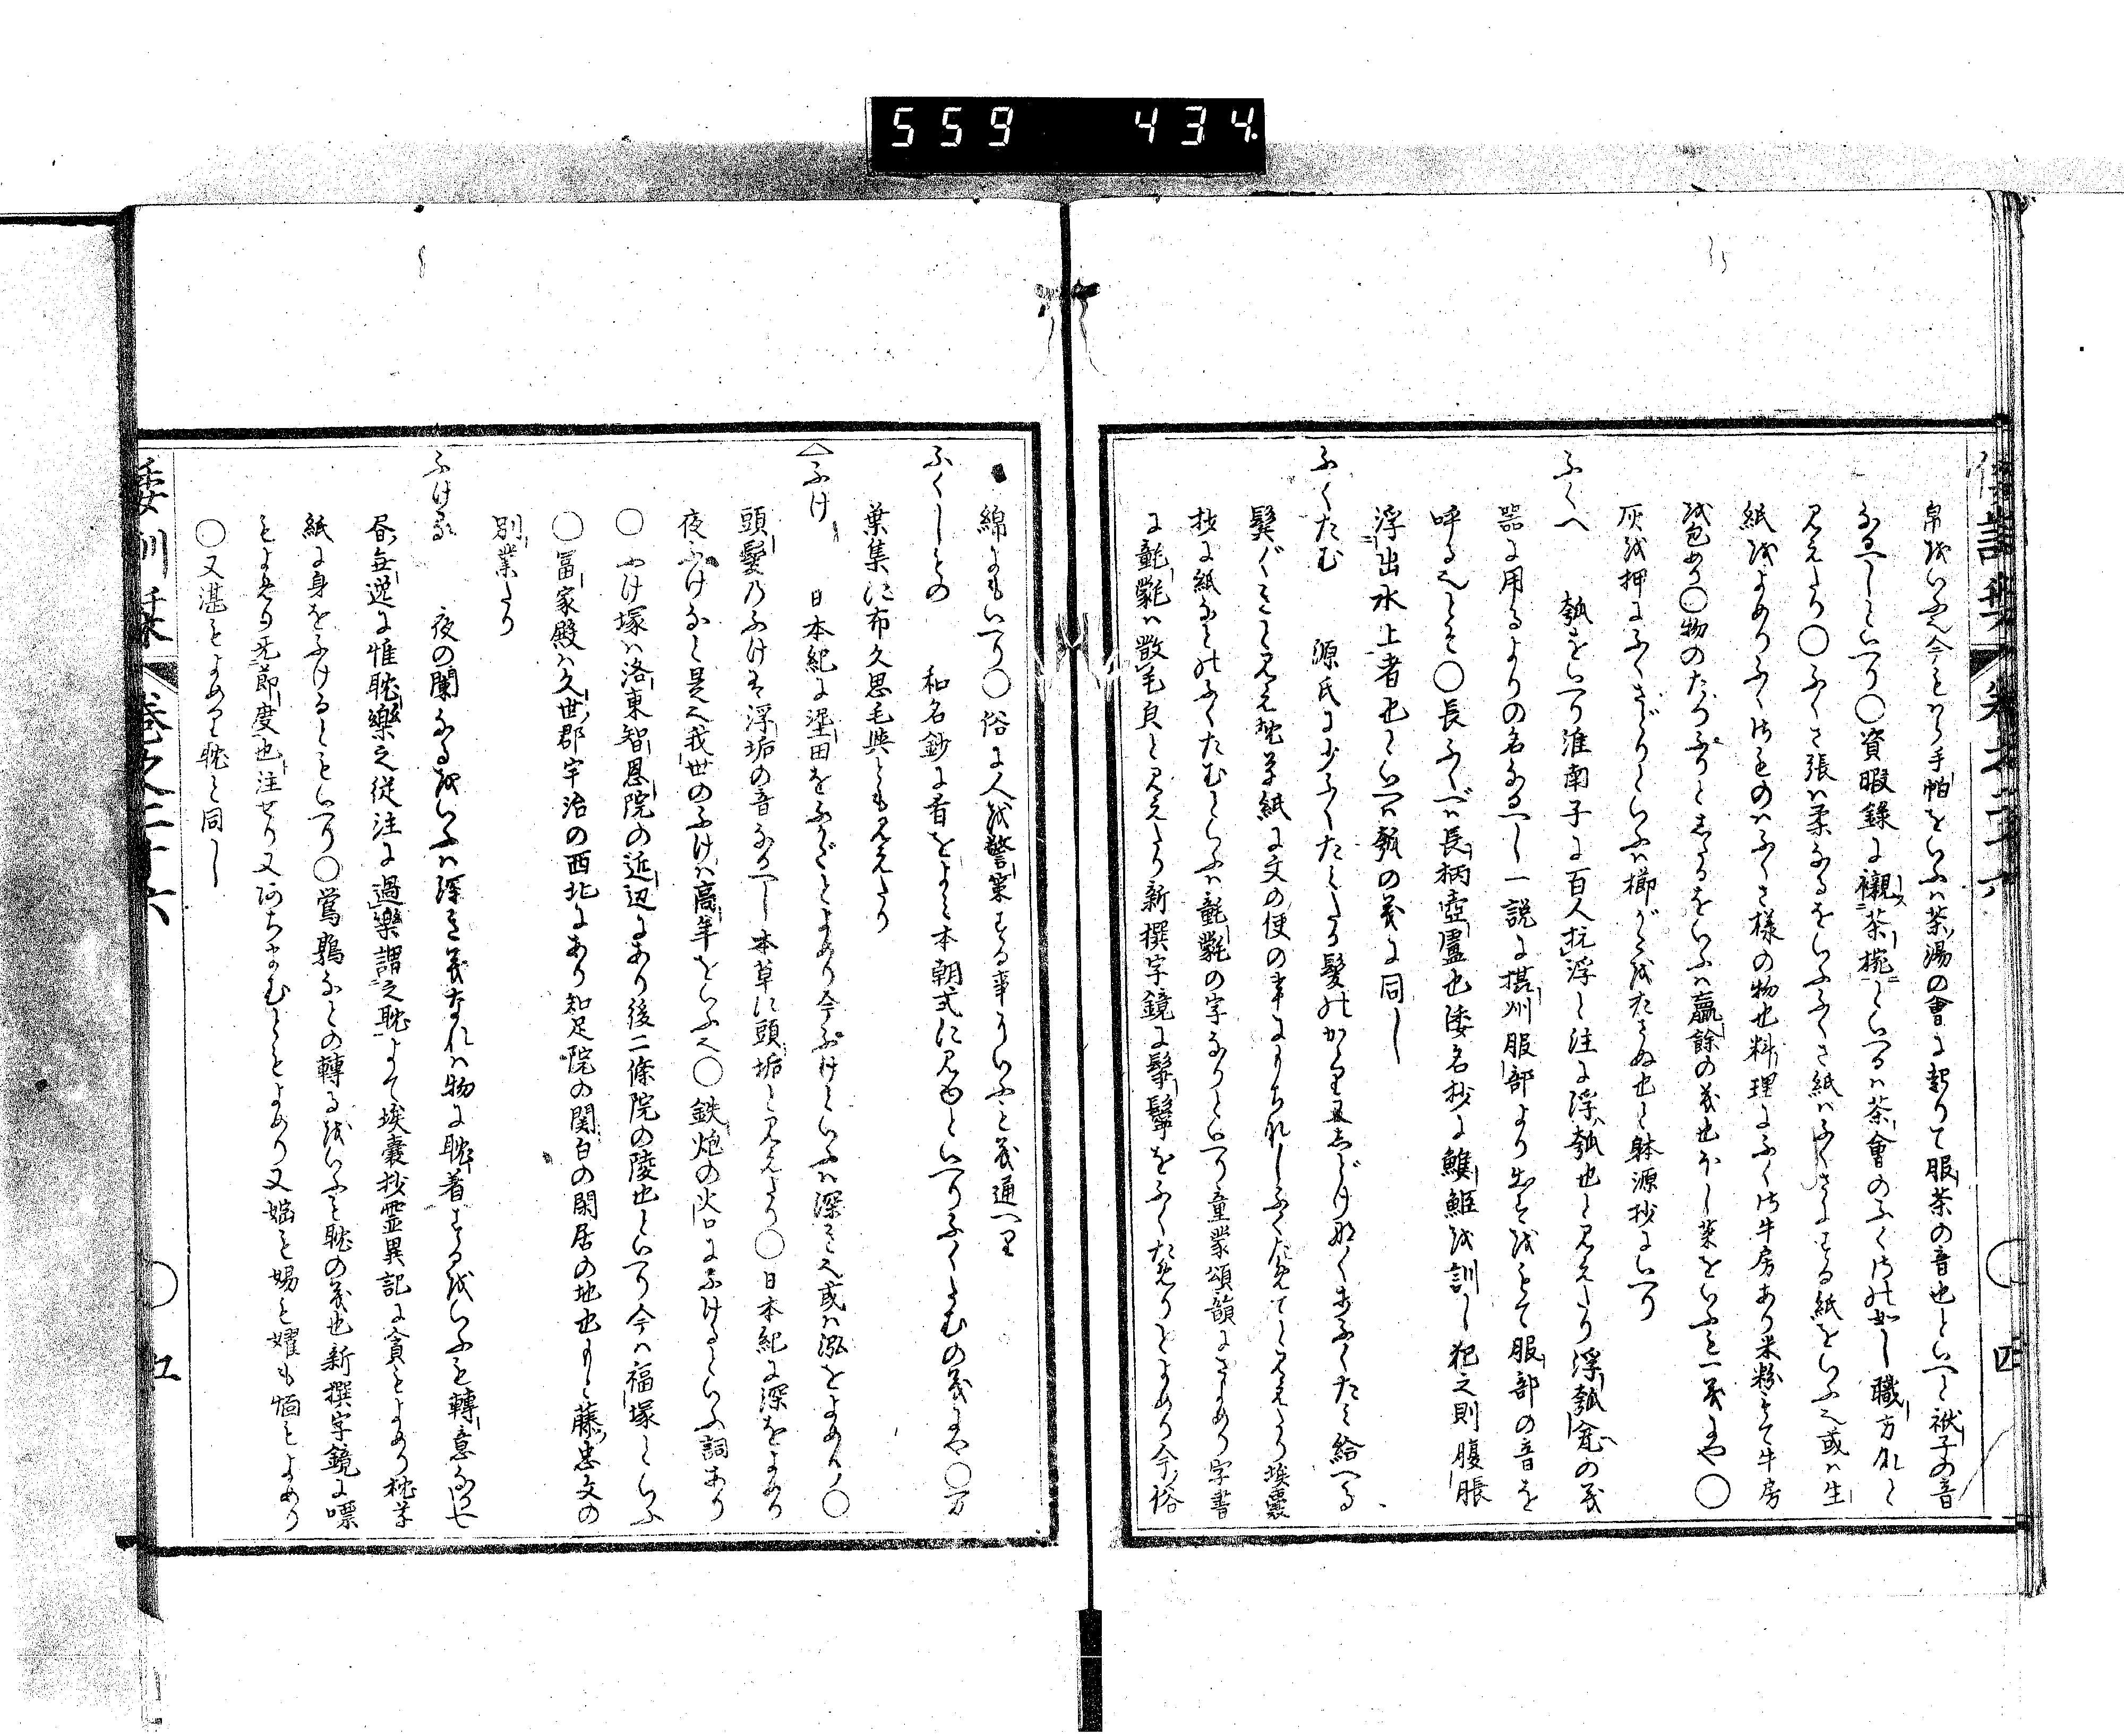 559 434
帛をいふ今もはら手帕をいふは茶湯の會に起りて服茶の音也といへと袱子の音
なるへしといへり〇資暇錄に襯茶椀といへるは茶會のふくさの如し職方外と
見えたり〇ふくさ張は柔なるをいふふくさ紙はふくさにする紙をいふ也或は生
紙をよめりふくさものはふくさ様の物也料理にふくさ牛房あり米粉もて牛房
を包めり〇物のたつふりとしたるをいふは贏餘の義也ほし菜をいふも一義にや〇
灰を押にふくさどりといふは櫛がきをたさぬ也と躰源抄にいへり
ふくへ 瓠をいへり淮南子に百人抗浮と注に浮ハ瓠也と見えたり浮瓠瓮の義
器に用るよりの名なるへし一説に摂州服部より出すをもて服部の音を
呼る也とそ〇長ふくべは長柄壺盧也倭名抄に鯸䱌を訓し犯之則腹脹
浮出水上者也といへは瓠の義に同し
ふくたむ 源氏に少ふくたみたる髪のかゝりましどけなくふくたみ給へる
鬢ぐきと見え枕草紙に文の使の事にもちれしふくためてと見えたり埃囊
抄に紙なとのふくたむといふは氋氃の字なりといへり童蒙頌韻にさよめり字書
に氋氃は散毛皃と見えたり新撰字鏡に髼鬆をふくためりとよめり今俗
綿にもいへり〇俗に人を警策する事にいふも義通へり
ふくしとの 和名鈔に肴をよむ本朝式に見ゆといへりふくさむの義にや〇万
葉集に布久思毛與とも見えたり
△ふけ 日本紀に渥田をふかだとよめり今ふけといふは深き也或は泓をよめり〇
頭髮乃ふけは浮垢の音なるへし本草に頭垢と見えたり〇日本紀に深をよめり
夜ふけなと是也我世のふけは高年をいふ也〇鉄炮の火口にふけるといふ詞あり
〇ふけ塚は洛東智恩院の近辺にあり後二條院の陵也といへり今は福塚といふ
〇冨家殿は久世郡宇治の西北にあり知足院の関白の閑居の地也もと藤忠文の
別業たり
ふける 夜の闌なるをいふは深き義なれは物に耽着するをいふも轉意なるへし
昏無逸に惟耽樂之従注に過樂謂之耽よて埃囊抄霊異記に貪をよめり枕草
紙に身をふけるともいへり〇鴬鶏なとの轉るをいふも耽の義也新撰字鏡に嘌
をよめり无節度也注せり又ちすむともよめり又婸を婸を嬥も慆をよめり
〇又湛をよめるは耽と同し
倭訓栞 巻之二十六 四
倭訓栞 巻之二十六 五